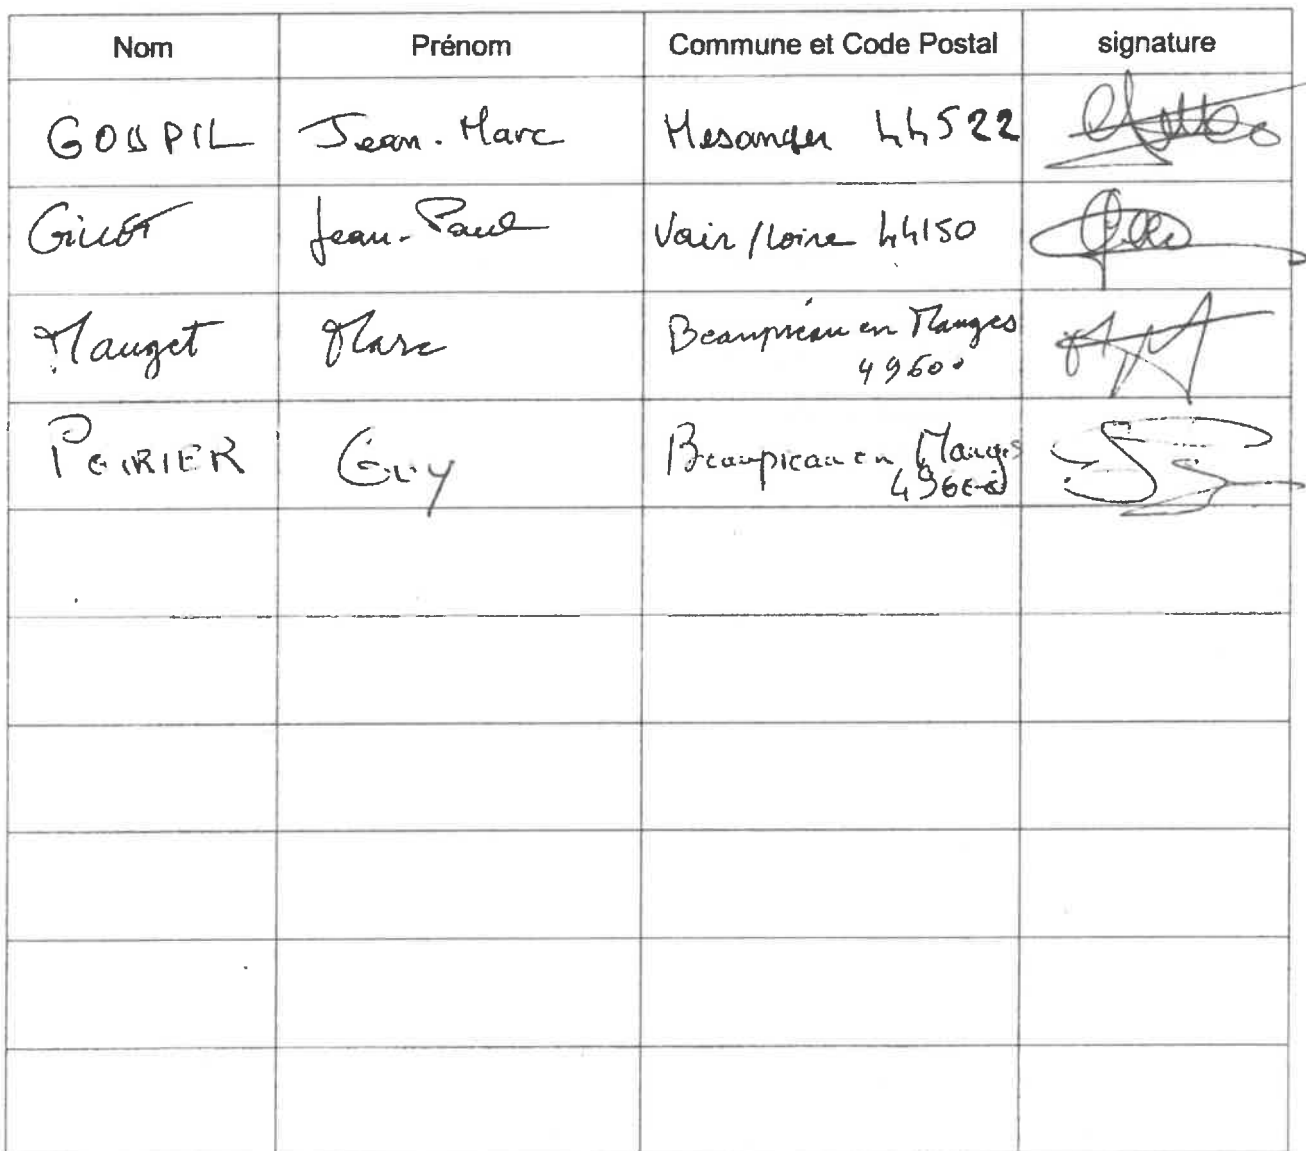 Nom Prénom Commune et Code Postal signature
GOUPIL Jean-Marc Mesanger 44522
Gillot Jean-Paul Vair/Loire 44150
Mauget Marc Beaupréau en Mauges
49600
POIRIER Guy Beaupreau en Mauges
49600